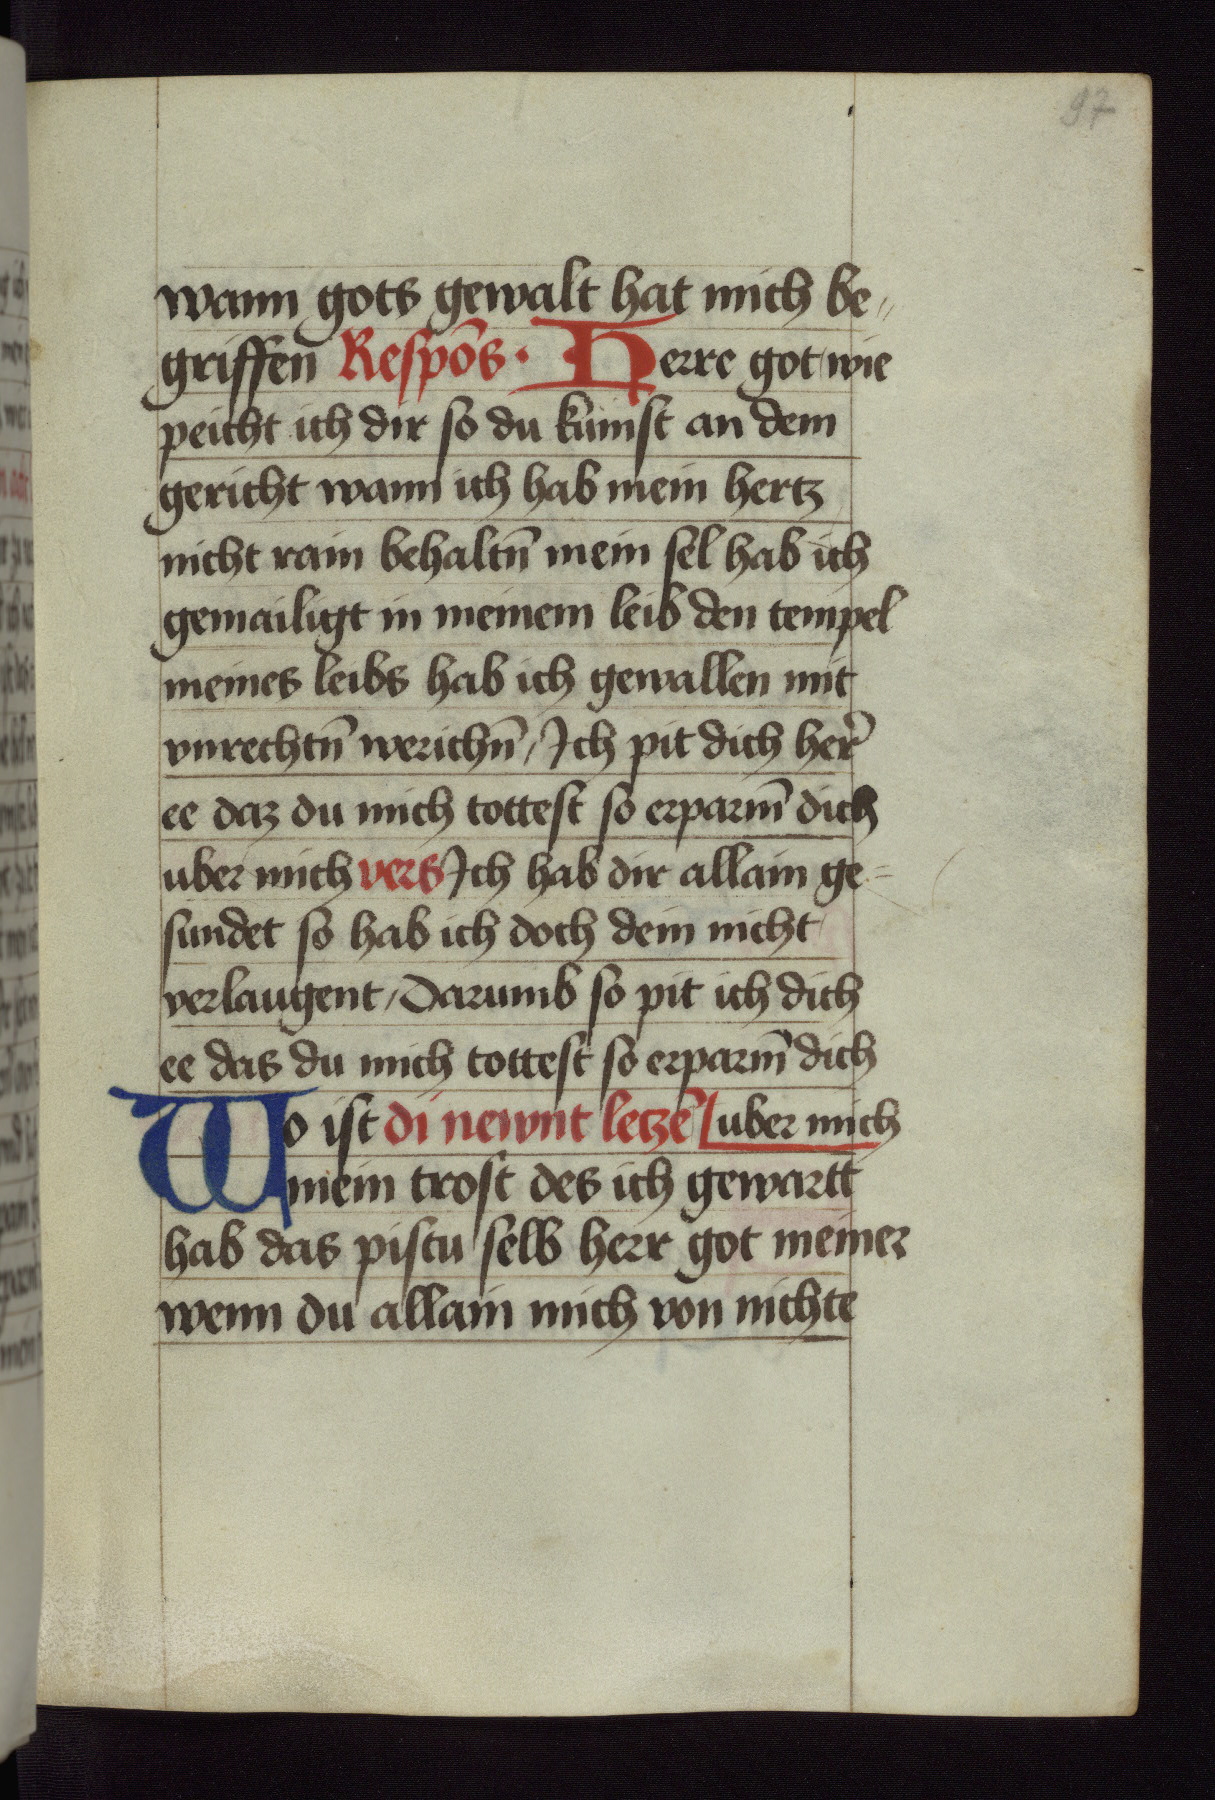 97
wann gots gewalt hat mich be-
griffen Respōs · Herre got wie
peicht ich dir so du kumst an dem
gericht wann ich hab mein hertz
nicht rain behaltn̄ mein sel hab ich
gemailigt in meinem leib den tempel
meines leibs hab ich gewallen mit
vnrechtn̄ werichn̄ / Ich pit dich her̄
ee daz du mich tottest so erparm̄ dich
uber mich vers Ich hab dir allain ge-
sundet so hab ich doch dein nicht
verlaugent / Darumb so pit ich dich
ee das du mich tottest so erparm̄ dich
Wo ist di newnt letzē uber mich
mein trost des ich gewartt
hab das pistu selb herr got meiner
wenn du allain mich von nichte